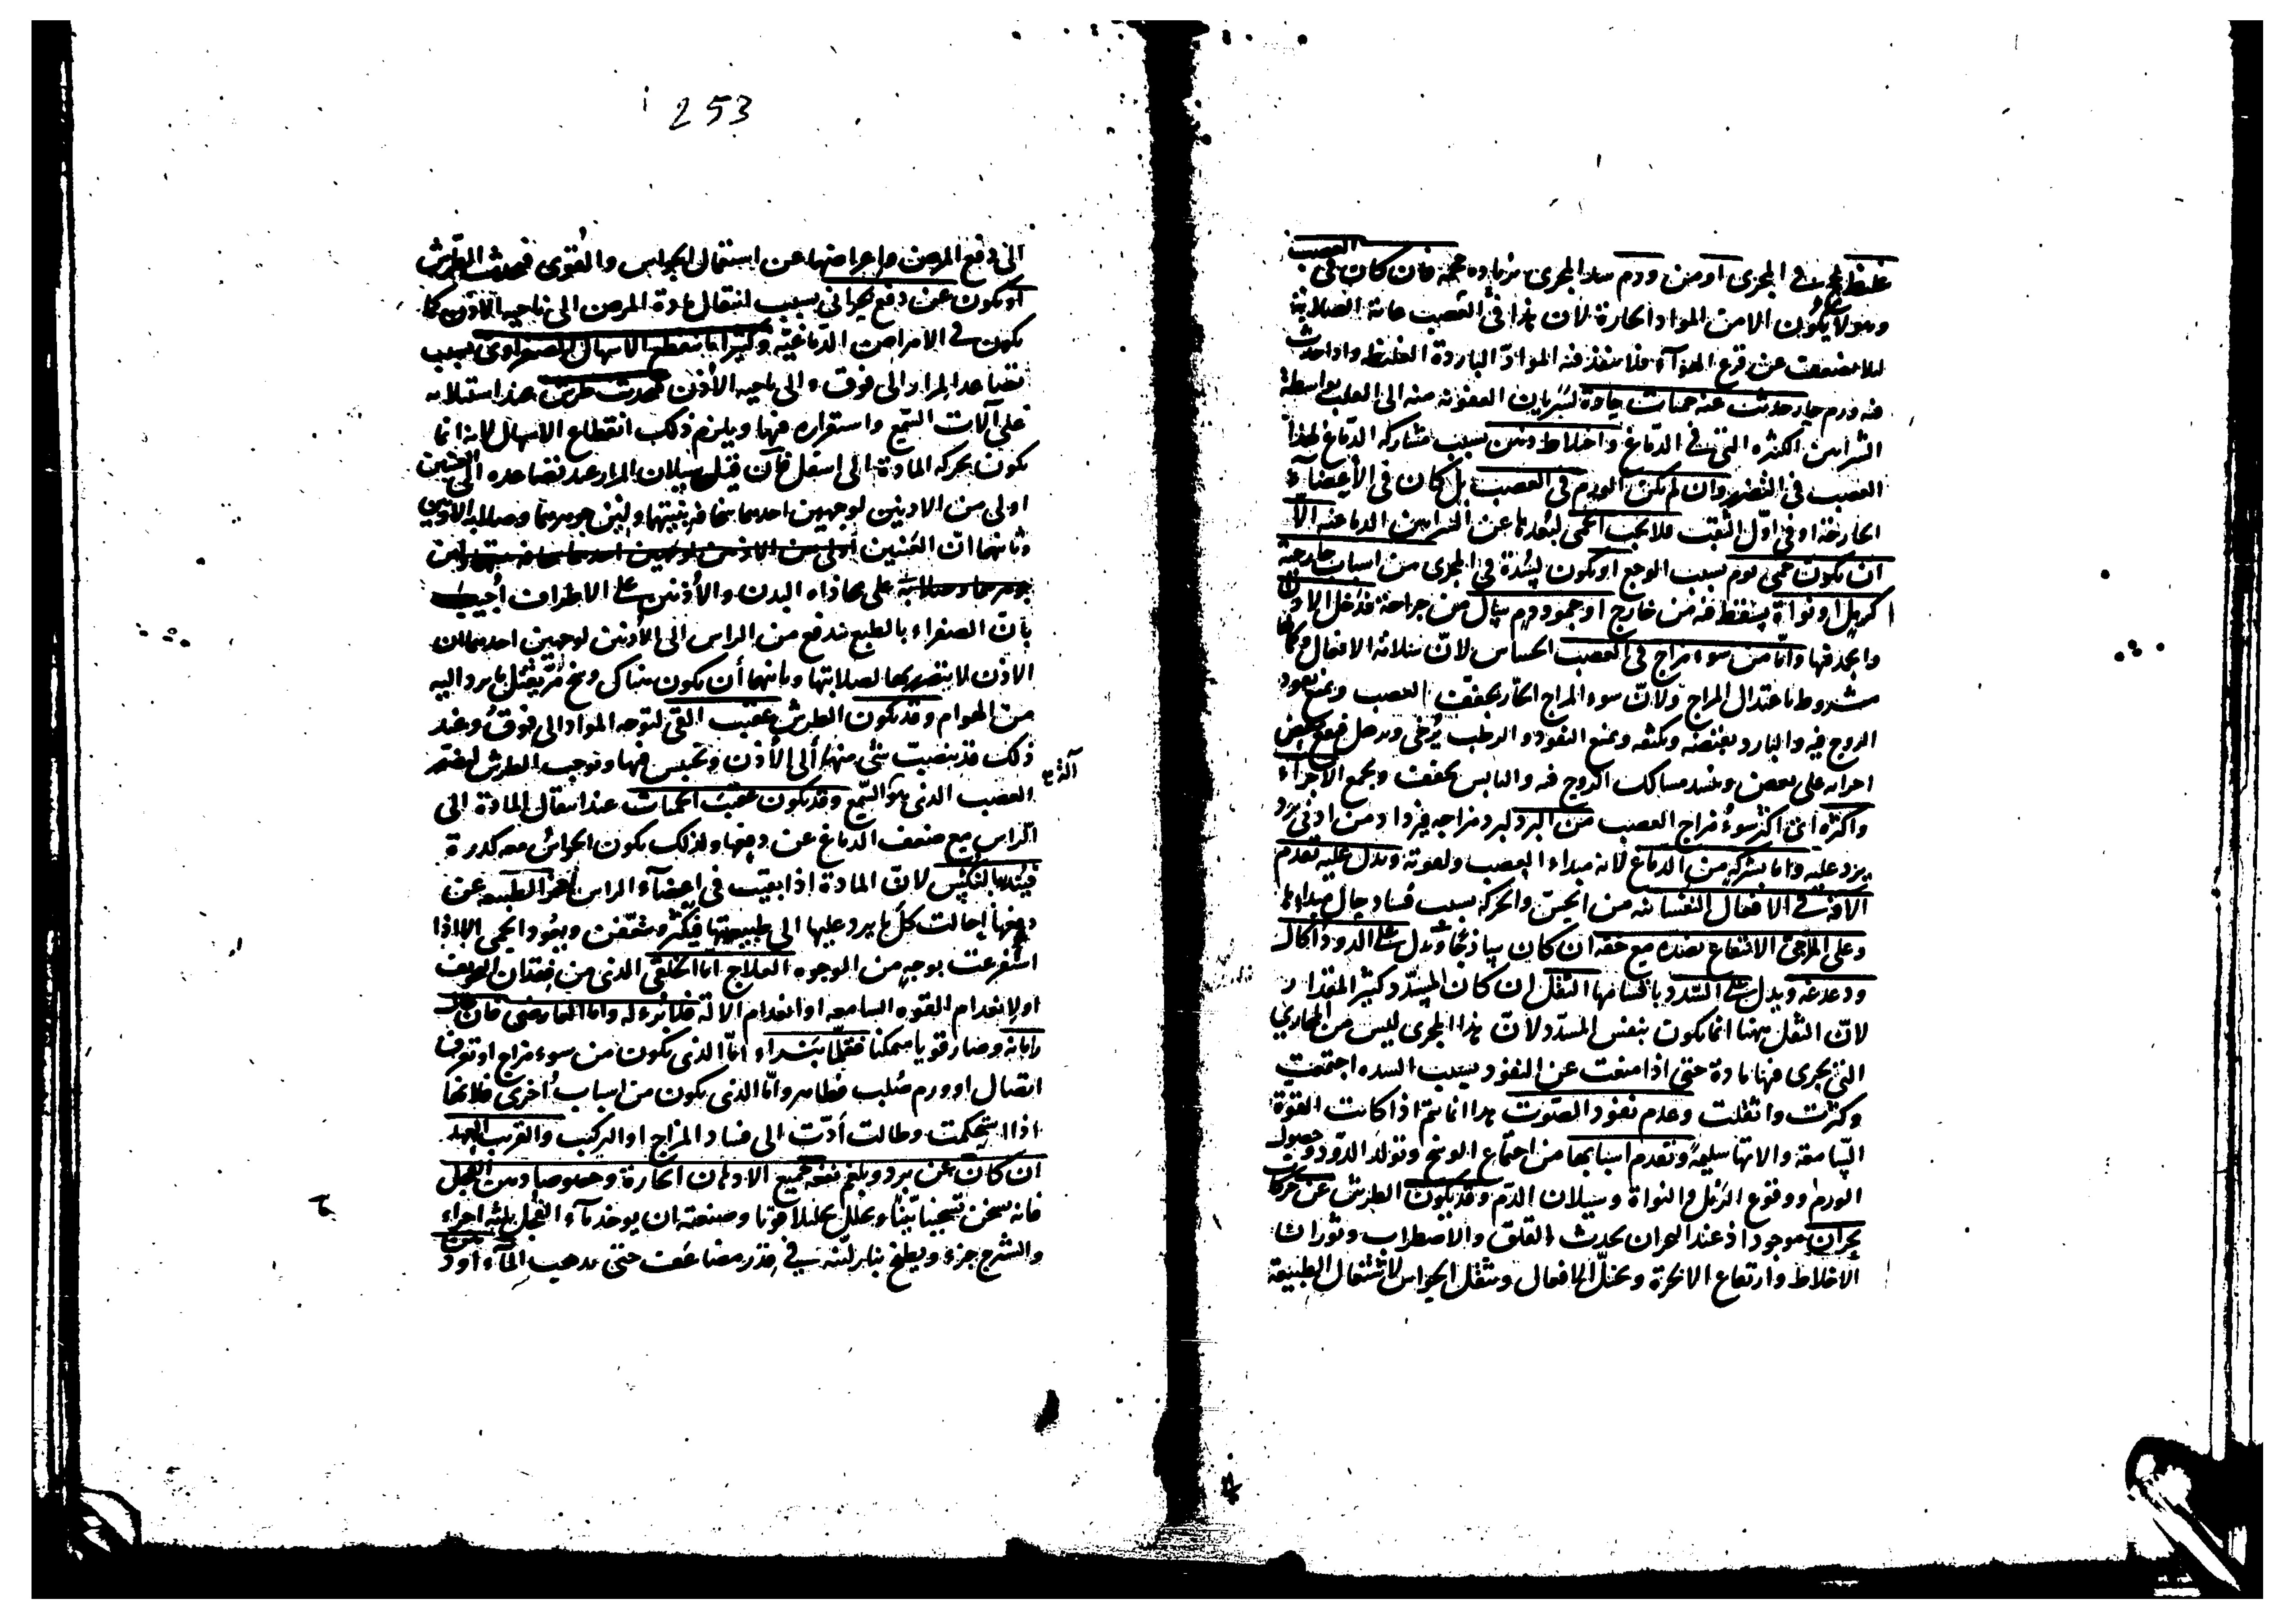 غلظ يحدث في المجرى او من ورم سد المجرى بزيادة حجمه فان كان في العصب
وهو لا يكون الا من المواد الحارة لان هذا في العصب غاية الصلابة
لئلا يضعف عن قرع الهواء فلا ينفذ فيه المواد الباردة الغليظة واذا حدث
فيه ورم حار حدثت عنه حميات حادة لسريان العفونة منه الى القلب بواسطة
الشرايين الكثيرة التي في الدماغ واختلاط ذهن بسبب مشاركة الدماغ لهذا
العصب في التضرر وان لم يكن الورم في العصب بل كان في الأعضاء
الخارجة او في اول الثقب فلا يجب الحمى لبعدها عن الشرايين الدماغية الا
ان يكون حمى يوم بسبب الوجع او يكون لسدة في المجرى من اسباب خارجية
كرمل او نواة يسقط فيه من خارج او جمود دم سال من جراحة داخل الاذن
وامن سوء مزاج في العصب الحساس لان سلامة الافعال وكمالها
مشروط باعتدال المزاج ولان سوء المزاج الحار يجفف العصب ويمنع نفوذ
الروح فيه والبارد يقبضه ويكثفه ويمنع النفوذ والرطب يرخى ويرهل فيقع بعض
اجزائه على بعض وينسد مسالك الروح فيه واليابس يجفف ويجمع الاجزاء
واكثره اى اكثر سوء مزاج العصب من البرد لبرد مزاجه فيزداد من ادنى برد
يرد عليه واما بشركة من الدماغ لانه مبداء العصب ولقوته ويدل عليه تقدم
الآفة في الافعال النفسانية من الحس والحركة بسبب فساد حال مبداءها
وعلى المزاجى الانتفاع بضده مع خفة ان كان ساذجا ويدل على الدود أكال
ودغدغة ويدل على السدد باقسامها الثقل ان كان المسدد كثير المقدار
لان الثقل ههنا انما يكون بنفس المسدد لان هذا المجرى ليس من المجارى
التى يجرى فيها مادة حتى اذا منعت عن النفوذ بسبب السدة اجتمعت
وكثرت واثقلت وعدم نفوذ الصوت هذا انما يتم اذا كانت القوة
السامعة والاتها سليمة وتقدم اسبابها من اجتماع الوسخ وتولد الدود وحصول
الورم ووقوع الرمل والنواة وسيلان الدم وقد يكون الطرش عن حركات
بحران موجود اذ عند البحران يحدث القلق والاضطراب وثوران
الاخلاط وارتفاع الابخرة ويختل الافعال ويثقل الحواس لاشتغال الطبيعة
253
الى دفع المرض واعراضها عن استعمال الحواس والقوى فيحدث الطرش
او يكون عن دفع بحرانى بسبب انتقال مادة المرض الى ناحية الاذن كما
يكون في الامراض الدماغية وكثيرا ما ينقطع الاسهال الصفراوى بسبب
تصاعد المرار الى فوق والى ناحية الأذن فحدث طرش عند استيلائه
على آلات السمع واستقراره فيها ويلزم ذلك انقطاع الاسهال لانه انما
يكون بحركة المادة الى اسفل فان قيل سيلان المرار عند تصاعده الى العينين
اولى من الاذنين لوجهين احدهما سخافة بنيتهما ولين جوهرهما وصلابة الاذنين
وثانيهما ان العينين
على محاذاة البدن والأذنين على الاطراف أجيب
بان الصفراء بالطبع تدفع من الراس الى الأذنين لوجهين احدهما ان
الاذن لا يتضرر بها لصلابتها وثانيهما أن يكون هناك وسخ مر يقتل ما يرد اليه
من الهوام وقد يكون الطرش عقيب القى لتوجه المواد الى فوق وعند
ذلك قد ينصب شئ منها الى الأذن وتحبس فيها وتوجب الطرش
العصب الذى هو آلة السمع وقد يكون عقيب الحميات عند انتقال المادة الى
الراس مع ضعف الدماغ عن دفعها ولذلك يكون الحواس معه كدرة
لان المادة اذا بقيت في اعضاء الراس لعجز الطبيعة عن
دفعها احالت كل ما يرد عليها الى طبيعتها فيكثر ويتعفن ويعود الحمى الا اذا
استفرغت بوجه من الوجوه العلاج اما الخلقى الذى من فقدان التجويف
او لانعدام القوة السامعة او انعدام الالة فلا برء له واما العارضى فان طال
زمانه وصار قويا متمكنا فقلما يبرء اما الذى يكون من سوء مزاج او تفرق
اتصال او ورم صلب فظاهر واما الذى يكون من اسباب أخرى فلانها
اذا استحكمت وطالت أدت الى فساد المزاج او التركيب والقريب العهد
ان كان عن برد وبلغم نفعه جميع الادهان الحارة وخصوصا دهن الفجل
فانه يسخن تسخينا بينا ويحلل تحليلا قويا وصنعته ان يوخذ ماء الفجل ثلثة اجزاء
والشيرج جزء ويطبخ بنار لينة في قدر مضاعف حتى يذهب الماء او دهن